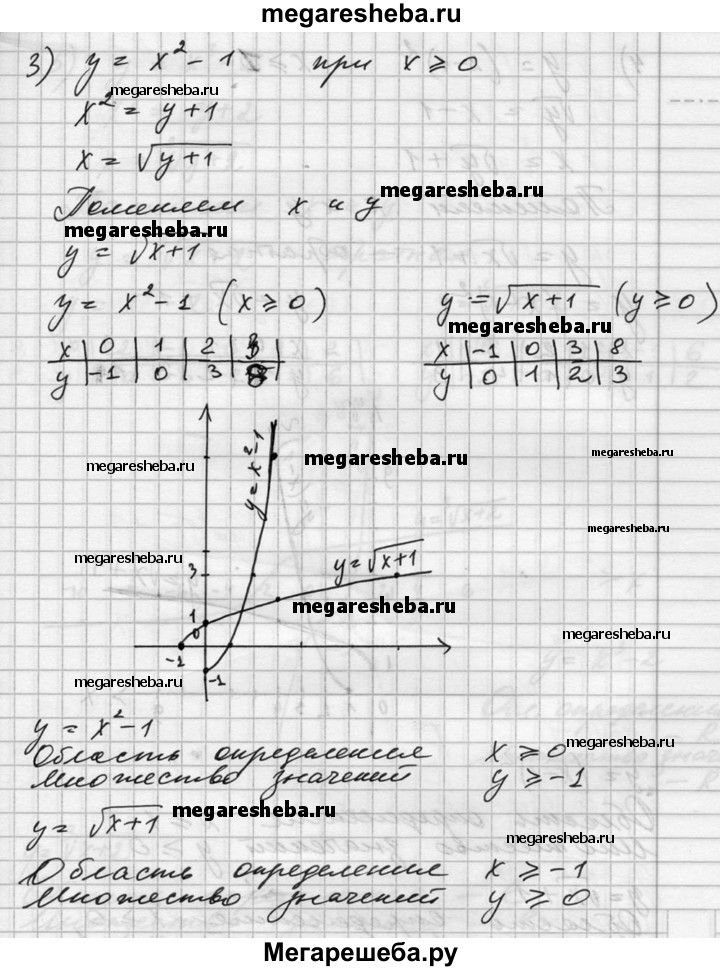 megaresheba.ru
3) y = x² - 1 при x ≥ 0
megaresheba.ru
x² = y + 1
x = √(y + 1)
Поменяем x и y
megaresheba.ru
megaresheba.ru
y = √(x+1)
y = x² - 1 (x ≥ 0) y = √(x+1) (y ≥ 0)
megaresheba.ru
x | 0 | 1 | 2 | 3 | x | -1 | 0 | 3 | 8
y | -1 | 0 | 3 | 8 | y | 0 | 1 | 2 | 3
y = x² - 1
megaresheba.ru
megaresheba.ru
megaresheba.ru
megaresheba.ru
megaresheba.ru
y = √(x+1)
3
megaresheba.ru
1
0
megaresheba.ru
-1
-1
megaresheba.ru
y = x² - 1
Область определения x ≥ 0
megaresheba.ru
Множество значений y ≥ -1
y = √(x+1)
megaresheba.ru
megaresheba.ru
Область определения x ≥ -1
Множество значений y ≥ 0
Мегарешеба.ру